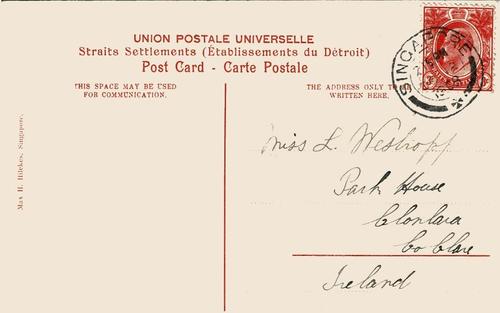 UNION POSTALE UNIVERSELLE
Straits Settlements (Établissements du Détroit)
Post Card - Carte Postale
THIS SPACE MAY BE USED
FOR COMMUNICATION.
THE ADDRESS ONLY TO
WRITTEN HERE.
SINGAPORE
Max H. Hilckes, Singapore.
Miss L. Westropp
Park House
Clonlara
Co Clare
Ireland